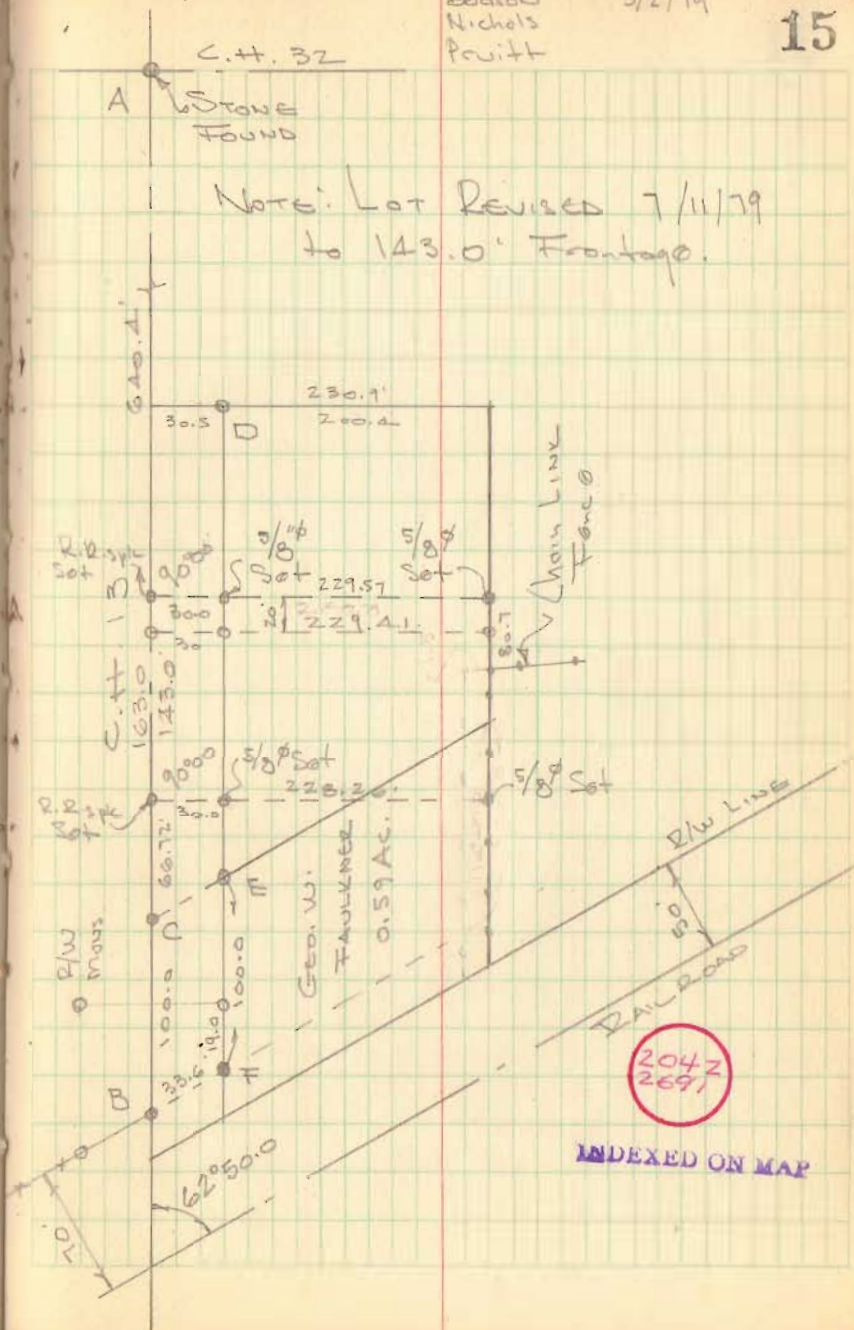 5/2/79
Nichols
Pruitt
15
C.H. 32
A
STONE
FOUND
NOTE: LOT REVISED 7/11/79
to 143.0' Frontage.
640.4'
230.9'
30.5
D
200.4
Chain LINK
Fence
R.R. spk
Set
5/8"ø
Set
5/8ø
Set
229.57
30.0
20'
229.41
30
80.7
C.H. 13
163.0
143.0
5/8ø Set
228.26
30.0
5/8ø Set
R.R. spk
Set
66.72'
C
E
GEO. W.
FAULKNER
0.59 AC.
R/W LINE
50'
RAILROAD
R/W
Mons
100.0
100.0
19.0
33.6
B
F
62°50.0
70'
2042
2691
INDEXED ON MAP